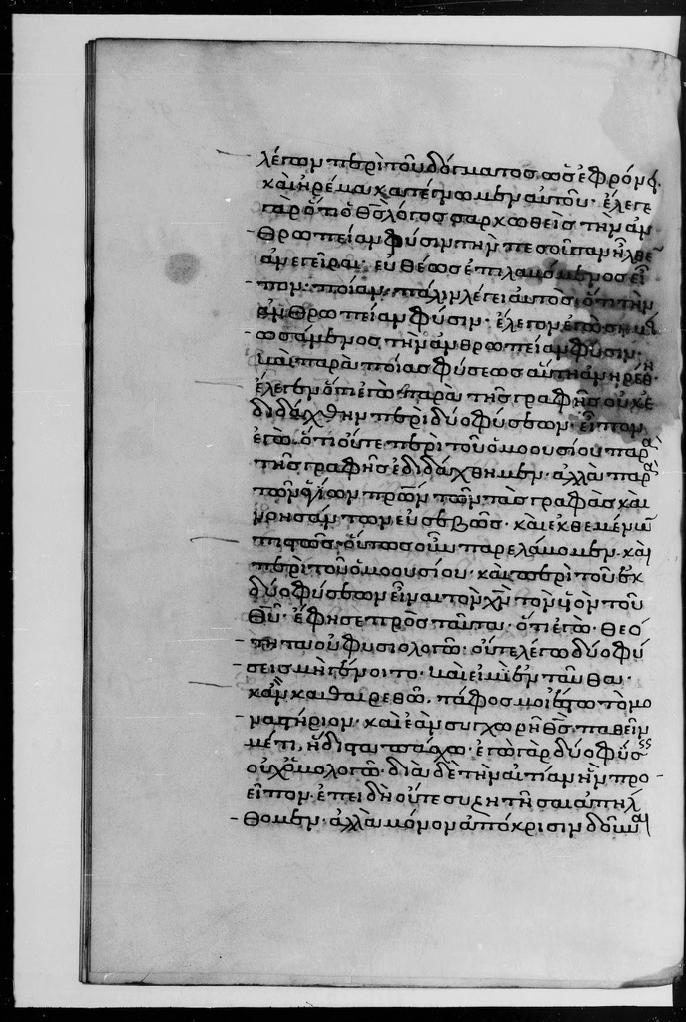 λέγων περὶ τοῦ δόγματος ὡς ἐφρόνει.
καὶ ἠρέμα κατέγνωμεν αὐτοῦ· ἔλεγε
γὰρ ὅτι ὁ θς λόγος σαρκωθεὶς τὴν ἀν
θρωπείαν φύσιν τὴν πεσοῦσαν ἦλθεν
ἀνεγεῖραι· εὐθέως ἐπιλαμβανόμενος εἶ
πον· ποίαν· πάλιν λέγει αὐτὸς· ὅτι τὴν
ἀνθρωπείαν φύσιν· ἔλεγον ἐγὼ
σάμενος τὴν ἀνθρωπείαν φύσιν·
καὶ παρὰ ποίας φύσεως αὕτη ἀνῃρέθη·
ἔλεγεν ὅτι ἐγὼ παρὰ τῆς γραφῆς οὐκ ἐ
διδάχθην περὶ δύο φύσεων· εἶπον
ἐγὼ· ὅτι οὔτε περὶ τοῦ ὁμοουσίου παρὰ
τῆς γραφῆς ἐδιδάχθημεν· ἀλλὰ παρὰ
τῶν ἁγίων πρων τῶν τὰς γραφὰς καὶ
νοησάντων εὐσεβῶς· καὶ ἐκθεμένων
πιστῶς· οὕτως οὖν παρελάβομεν καὶ
περὶ τοῦ ὁμοουσίου· καὶ περὶ τοῦ ἐκ
δύο φύσεων εἶναι τὸν χν τὸν υἱὸν τοῦ
θυ· ἔφησε πρὸς ταῦτα· ὅτι ἐγὼ· θεό
τητα οὐ φυσιολογῶ· οὔτε λέγω δύο φύ
σεις μὴ γένοιτο· καὶ εἰμὶ ἐνταῦθα·
κἂν καθαιρεθῶ. τάφος μοι ἔστω τὸ μο
ναστήριον· καὶ ἐὰν συγχωρῇ θς παθεῖν
μέ τι, ἥδιστα πάσχω· ἐγὼ γὰρ δύο φύσεις
οὐχ ὁμολογῶ· διὰ δὲ τὴν αἰτίαν ἣν προ
εῖπον· ἐπειδὴ οὔτε συζητῆσαι ἀπήλ
θομεν· ἀλλὰ μόνον ἀπόκρισιν δοῦναι